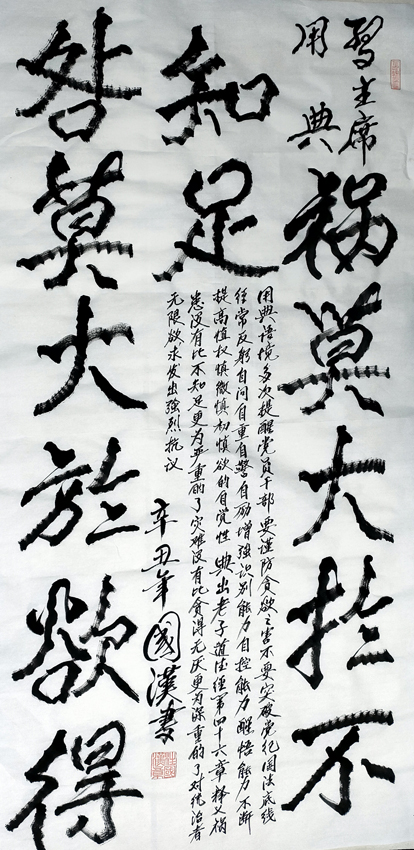 習主席
用典
祸莫大於不
知足
咎莫大於欲得
用典语境多次提醒党员干部要谨防贪欲之害不要突破党纪国法底线
经常反躬自问自重自警自励增强识别能力自控能力醒悟能力不断
提高慎权慎微慎初慎欲的自觉性 典出老子道德经第四十六章释义祸
患没有比不知足更为严重的了灾难没有比贪得无厌更为深重的了对统治者
无限欲求发出强烈抗议
辛丑年國漢書